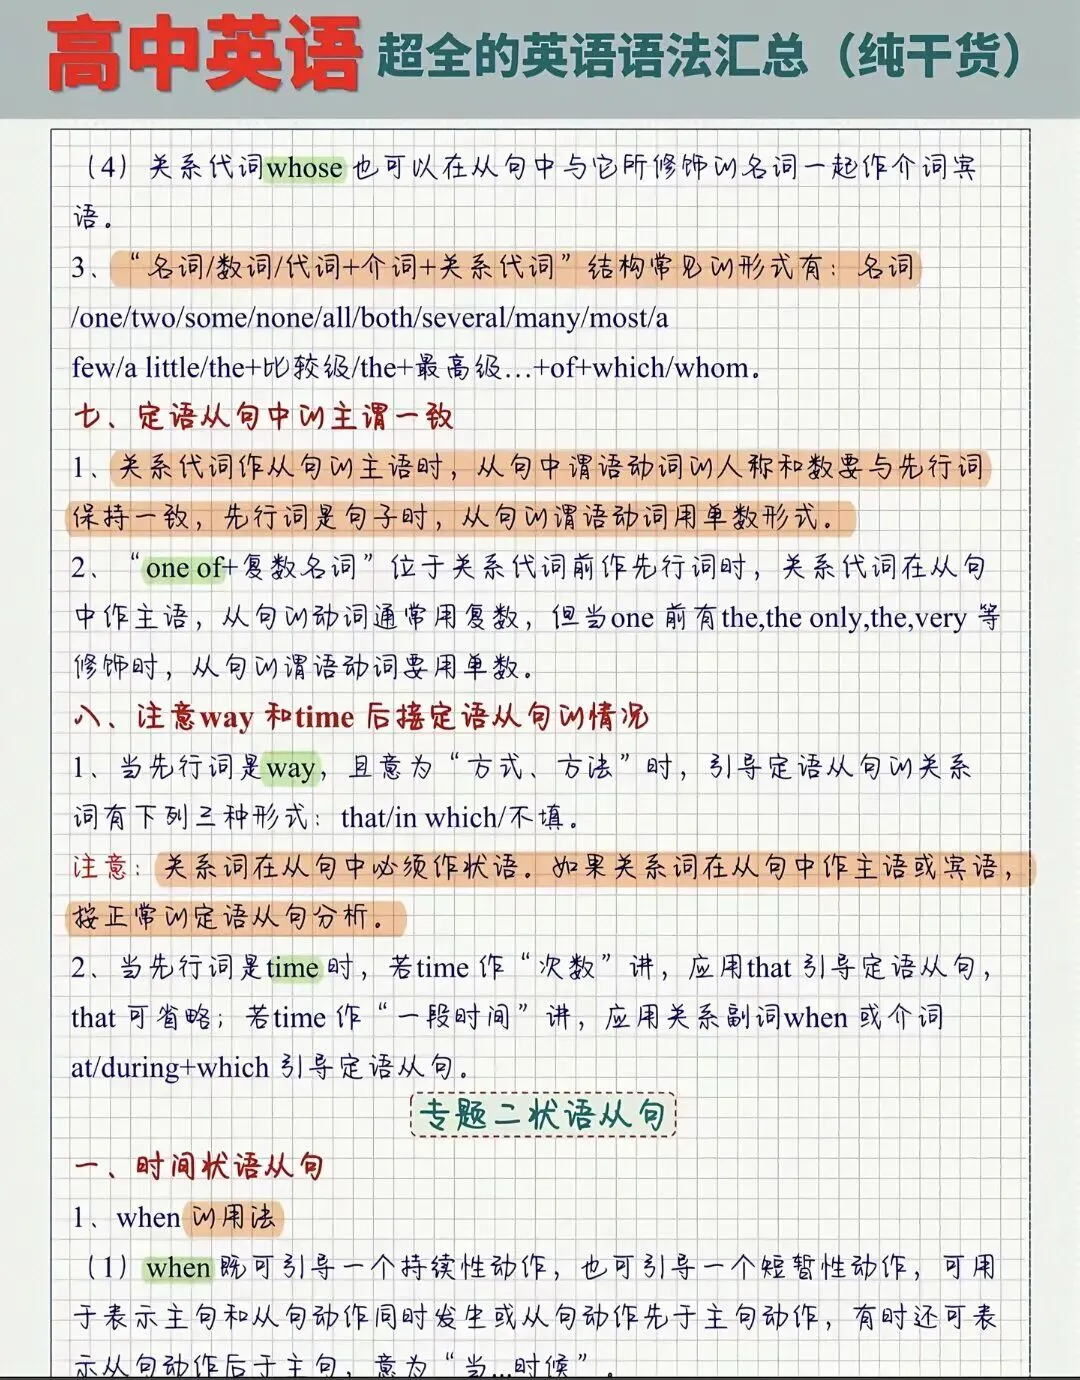 高中英语 超全的英语语法汇总（纯干货）
（4）关系代词whose 也可以在从句中与它所修饰的名词一起作介词宾
语。
3、“名词/数词/代词+介词+关系代词”结构常见的形式有：名词
/one/two/some/none/all/both/several/many/most/a
few/a little/the+比较级/the+最高级…+of+which/whom。
七、定语从句中的主谓一致
1、关系代词作从句的主语时，从句中谓语动词的人称和数要与先行词
保持一致，先行词是句子时，从句的谓语动词用单数形式。
2、“one of+复数名词”位于关系代词前作先行词时，关系代词在从句
中作主语，从句的动词通常用复数，但当one 前有the,the only,the,very 等
修饰时，从句的谓语动词要用单数。
八、注意way 和time 后接定语从句的情况
1、当先行词是way，且意为“方式、方法”时，引导定语从句的关系
词有下列三种形式：that/in which/不填。
注意：关系词在从句中必须作状语。如果关系词在从句中作主语或宾语，
按正常的定语从句分析。
2、当先行词是time 时，若time 作“次数”讲，应用that 引导定语从句，
that 可省略；若time 作“一段时间”讲，应用关系副词when 或介词
at/during+which 引导定语从句。
专题二状语从句
一、时间状语从句
1、when 的用法
（1）when 既可引导一个持续性动作，也可引导一个短暂性动作，可用
于表示主句和从句动作同时发生或从句动作先于主句动作，有时还可表
示从句动作后于主句，意为“当...时候”。